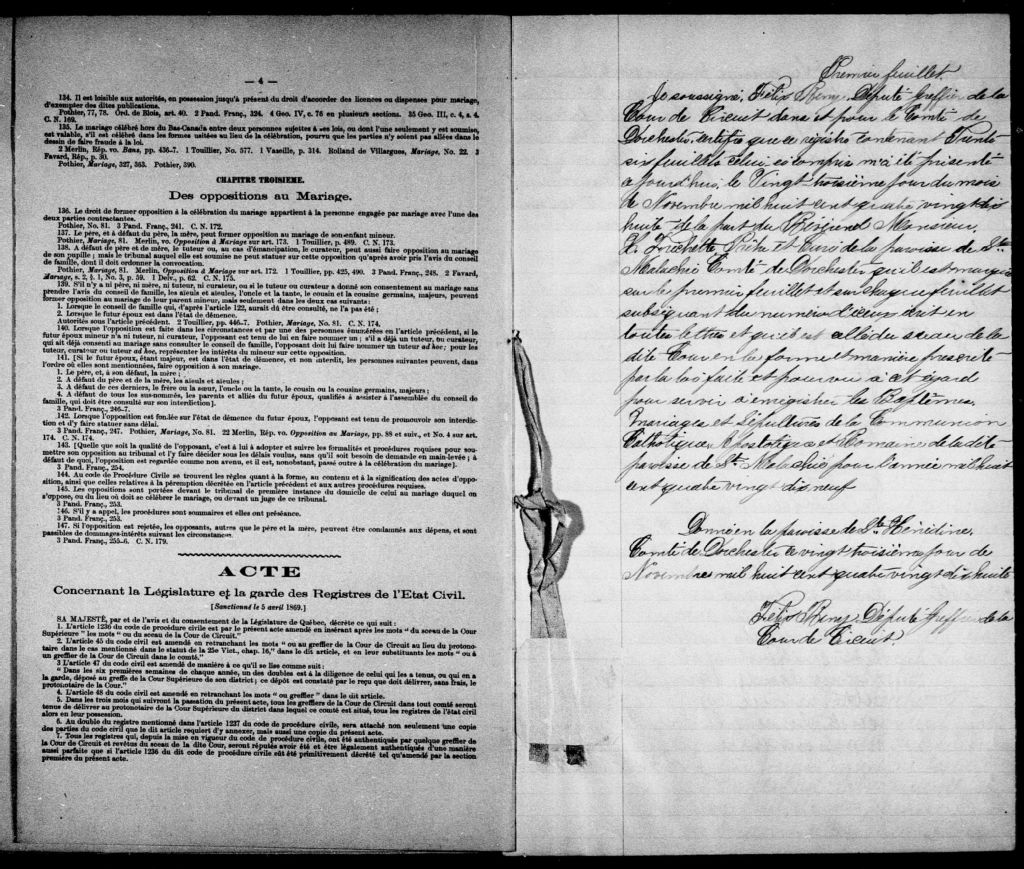 — 4 —
134. Il est loisible aux autorités, en possession jusqu'à présent du droit d'accorder des licences ou dispenses pour mariage,
d'exempter des dites publications.
Pothier, 77, 78. Ord. de Blois, art. 40. 2 Pand. Franç., 324. 4 Geo. IV, c. 76 en plusieurs sections. 35 Geo. III, c. 4, s. 4.
C. N. 169.
135. Le mariage célébré hors du Bas-Canada entre deux personnes sujettes à ses lois, ou dont l'une seulement y est soumise,
est valable, s'il est célébré dans les formes usitées au lieu de la célébration, pourvu que les parties n'y soient pas allées dans le
dessin de faire fraude à la loi.
2 Merlin, Rép. vo. Bans, pp. 436-7. 1 Touillier, No. 577. 1 Vazeille, p. 314. Rolland de Villargues, Mariage, No. 22. 3
Favard, Rép., p. 30.
Pothier, Mariage, 327, 363. Pothier, 390.
CHAPITRE TROISIEME.
Des oppositions au Mariage.
136. Le droit de former opposition à la célébration du mariage appartient à la personne engagée par mariage avec l'une des
deux parties contractantes.
Pothier, No. 81. 3 Pand. Franç., 241. C. N. 172.
137. Le père, et à défaut du père, la mère, peut former opposition au mariage de son enfant mineur.
Pothier, Mariage, 81. Merlin, vo. Opposition à Mariage sur art. 173. 1 Touillier, p. 489. C. N. 173.
138. A défaut de père et de mère, le tuteur ou, au cas d'émancipation, le curateur, peut aussi faire opposition au mariage de
son pupille; mais le tribunal auquel elle est soumise ne peut statuer sur cette opposition qu'après avoir pris l'avis du conseil
de famille, dont il doit ordonner la convocation.
Pothier, Mariage, 81. Merlin, Opposition à Mariage sur art. 172. 1 Touillier, pp. 425, 490. 3 Pand. Franç., 248. 2 Favard,
Mariage, s. 2, § 1, No. 3, p. 59. 1 Delv., p. 62. C. N. 175.
139. S'il n'y a ni père, ni mère, ni tuteur, ni curateur, ou si le tuteur ou curateur a donné son consentement au mariage sans
prendre l'avis du conseil de famille, les aïeuls et aïeules, l'oncle et la tante, le cousin et la cousine germains, majeurs, peuvent
former opposition au mariage de leur parent mineur, mais seulement dans les deux cas suivants:
1. Lorsque le conseil de famille qui, d'après l'article 122, aurait dû être consulté, ne l'a pas été;
2. Lorsque le futur époux est dans l'état de démence.
Autorités sous l'article précédent. 2 Touillier, pp. 446-7. Pothier, Mariage, No. 81. C. N. 174.
140. Lorsque l'opposition est faite dans les circonstances et par une des personnes énumérées en l'article précédent, si le
futur époux mineur n'a ni tuteur, ni curateur, l'opposant est tenu de lui en faire nommer un; s'il a déjà un tuteur, ou curateur,
qui ait déjà consenti au mariage sans consulter le conseil de famille, l'opposant doit lui faire nommer un tuteur ad hoc; pour les
tuteur, curateur ou tuteur ad hoc, représenter les intérêts du mineur sur cette opposition.
141. [Si le futur époux, étant majeur, est dans l'état de démence, et non interdit, les personnes suivantes peuvent, dans
l'ordre où elles sont mentionnées, faire opposition à son mariage.
1. Le père, et, à son défaut, la mère;
2. A défaut du père et de la mère, les aïeuls et aïeules;
3. A défaut de ces derniers, le frère ou la sœur, l'oncle ou la tante, le cousin ou la cousine germains, majeurs;
4. A défaut de tous les sus-nommés, les parents et alliés du futur époux, qualifiés à assister à l'assemblée du conseil de
famille, qui doit être consulté sur son interdiction].
3 Pand. Franç., 246-7.
142. Lorsque l'opposition est fondée sur l'état de démence du futur époux, l'opposant est tenu de promouvoir son interdic-
tion et d'y faire statuer sans délai.
3 Pand. Franç., 247. Pothier, Mariage, No. 81. 22 Merlin, Rép. vo. Opposition au Mariage, pp. 88 et suiv., et No. 4 sur art.
174. C. N. 174.
143. [Quelle que soit la qualité de l'opposant, c'est à lui à adopter et suivre les formalités et procédures requises pour sou-
mettre son opposition au tribunal et l'y faire décider sous les délais voulus, sans qu'il soit besoin de demande en main-levée; à
défaut de quoi, l'opposition est regardée comme non avenu, et il est, nonobstant, passé outre à la célébration du mariage].
3 Pand. Franç., 254.
144. Au code de Procédure Civile se trouvent les règles quant à la forme, au contenu et à la signification des actes d'oppo-
sition, ainsi que celles relatives à la péremption décrétée en l'article précédent et aux autres procédures requises.
145. Les oppositions sont portées devant le tribunal de première instance du domicile de celui au mariage duquel on
s'oppose, ou du lieu où doit se célébrer le mariage, ou devant un juge de ce tribunal.
3 Pand. Franç., 253.
146. S'il y a appel, les procédures sont sommaires et elles ont préséance.
3 Pand. Franç., 253.
147. Si l'opposition est rejetée, les opposants, autres que le père et la mère, peuvent être condamnés aux dépens, et sont
passibles de dommages-intérêts suivant les circonstances.
3 Pand. Franç., 255-6. C. N. 179.
ACTE
Concernant la Législature et la garde des Registres de l'Etat Civil.
[Sanctionné le 5 avril 1869.]
SA MAJESTÉ, par et de l'avis et du consentement de la Législature de Québec, décrète ce qui suit:
1. L'article 1236 du code de procédure civile est par le présent acte amendé en insérant après les mots "du sceau de la Cour
Supérieure" les mots "ou du sceau de la Cour de Circuit."
2. L'article 45 du code civil est amendé en retranchant les mots "ou au greffier de la Cour de Circuit au lieu du protono-
taire dans le cas mentionné dans le statut de la 25e Vict., chap. 16," dans le dit article, et en leur substituant les mots "ou à
un greffier de la Cour de Circuit dans le comté."
3 L'article 47 du code civil est amendé de manière à ce qu'il se lise comme suit:
"Dans les six premières semaines de chaque année, un des doubles est à la diligence de celui qui les a tenus, ou qui en a
la garde, déposé au greffe de la Cour Supérieure de son district; ce dépôt est constaté par le reçu que doit délivrer, sans frais, le
protonotaire de la Cour."
4. L'article 48 du code civil est amendé en retranchant les mots "ou greffier" dans le dit article.
5. Dans les trois mois qui suivront la passation du présent acte, tous les greffiers de la Cour de Circuit dans tout comté seront
tenus de délivrer au protonotaire de la Cour Supérieure du district dans lequel ce comté est situé, tous les registres de l'état civil
alors en leur possession.
6. Au double du registre mentionné dans l'article 1237 du code de procédure civile, sera attaché non seulement une copie
des parties du code civil que le dit article requiert d'y annexer, mais aussi une copie du présent acte.
7. Tous les registres qui, depuis la mise en vigueur du code de procédure civile, ont été authentiqués par quelque greffier de
la Cour de Circuit et revêtus du sceau de la dite Cour, seront réputés avoir été et être légalement authentiqués d'une manière
aussi parfaite que si l'article 1236 du dit code de procédure civile eût été primitivement décrété tel qu'amendé par la section
première du présent acte.
Premier feuillet.
Je soussigné, Félix Remy, Député Greffier de la
Cour de Circuit dans et pour le Comté de
Dorchester, certifie que ce registre contenant Trente
six feuillets celui ci compris m'a été présenté
aujourd'hui, le Vingt troisième jour du mois
de Novembre mil huit cent quatre vingt dix
huit de la part du Révérend Monsieur
Trichette Prêtre et Curé de la paroisse de St.
Malachie Comté de Dorchester qu'il est marqué
sur le premier feuillet et sur chaque feuillet
subséquant du numéro d'iceux écrit en
toutes lettres et qu'il est du sceau de la
dite Cour en la forme et manière prescrite
par la loi faite et pourvu à cet égard
pour servir à enregistrer les Baptêmes,
Mariages et Sépultures de la Communion
Catholique, Apostolique et Romaine de la dite
paroisse de St. Malachie pour l'année mil huit
cent quatre vingt dix neuf
Donné en la paroisse de Ste. Hénédine,
Comté de Dorchester ce vingt troisième jour de
Novembre mil huit cent quatre vingt dix huit
Félix Remy, Député Greffier de la
Cour de Circuit.